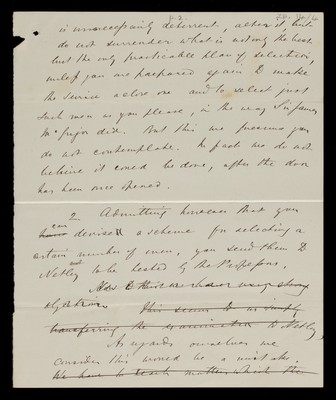 p. 2.
is unnecessarily deterrent, alter it, but
do not surrender what is not only the best
but the only practicable plan of selection,
unless you are prepared again to make
the service a close one and to select just
such men as you please, in the way Sir James
McGrigor did. But this we presume you
do not contemplate. In fact we do not
believe it could be done, after the door
has been once opened.
2 Admitting however that you
can devise a scheme for selecting a
certain number of men, you send them to
Netley to be tested by the Professors.
this we have very strong
objections
This seems to us simply
transferring the examination to Netley
As regards ourselves we
consider this would be a mistake.
We have to teach matters which the